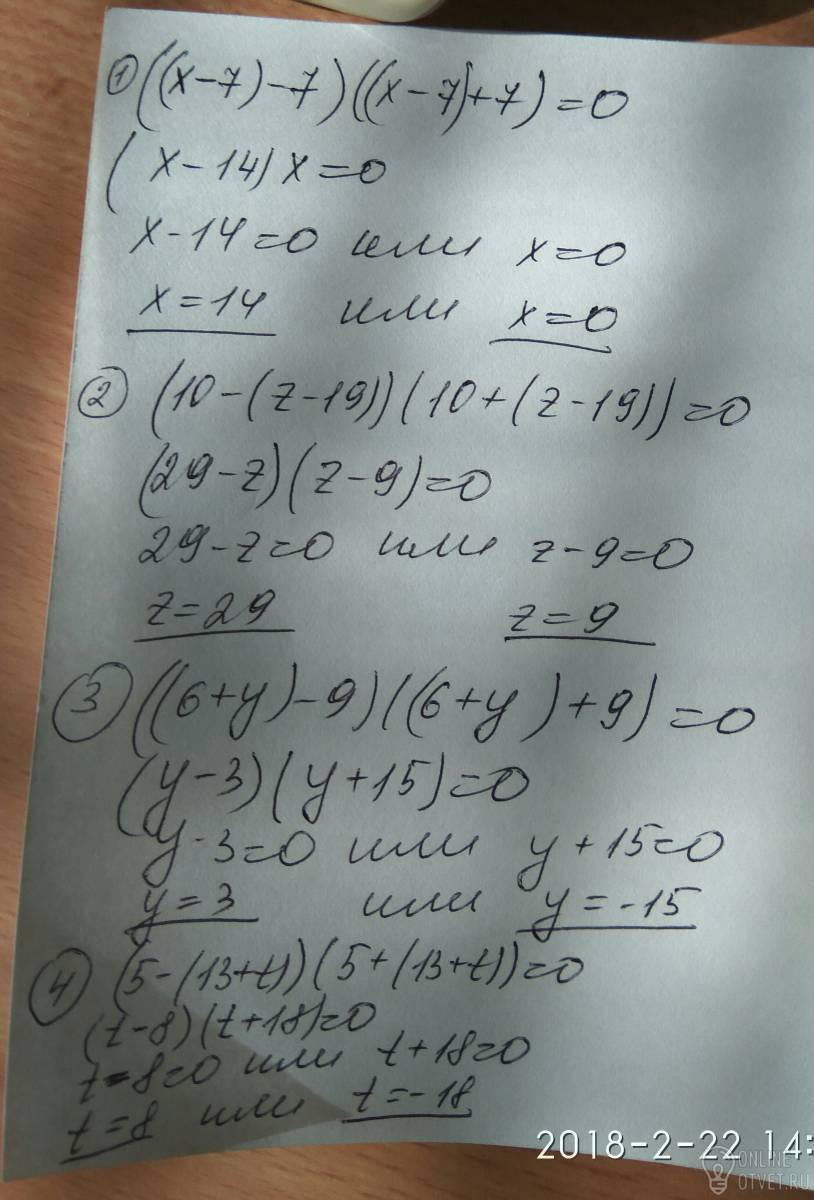 ① ((x-7)-7)((x-7)+7)=0
(x-14)x=0
x-14=0 или x=0
x=14 или x=0
② (10-(z-19))(10+(z-19))=0
(29-z)(z-9)=0
29-z=0 или z-9=0
z=29 z=9
③ ((6+y)-9)((6+y)+9)=0
(y-3)(y+15)=0
y-3=0 или y+15=0
y=3 или y=-15
④ (5-(13+t))(5+(13+t))=0
(t-8)(t+18)=0
t-8=0 или t+18=0
t=8 или t=-18
2018-2-22 14:
ONLINE
OTVET.RU